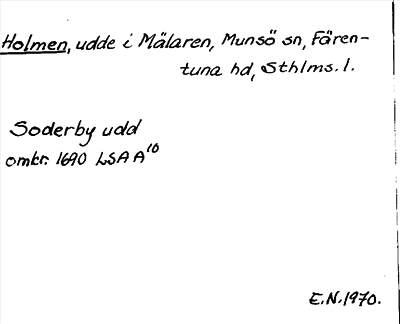 Holmen, udde i Mälaren, Munsö sn, Fären-
tuna hd, Sthlms. l.
Soderby udd
omkr. 1690 LSA A¹⁰
E.N. 1970.